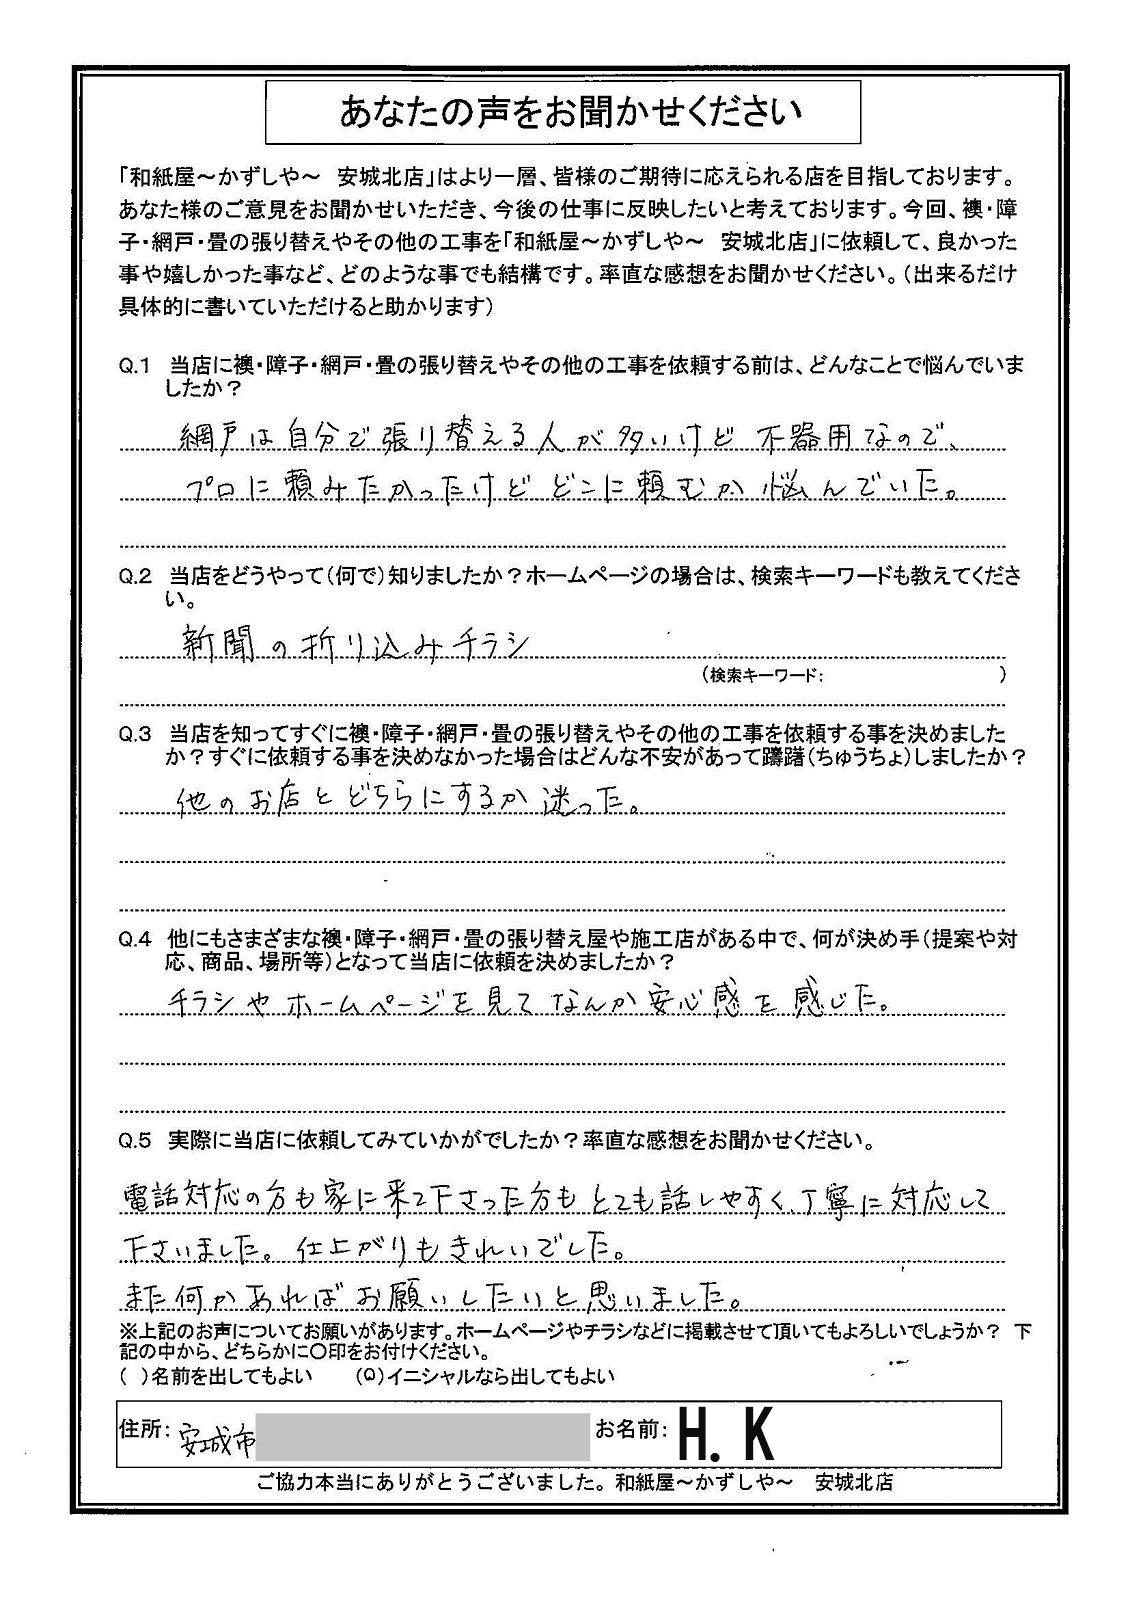 あなたの声をお聞かせください
「和紙屋～かずしや～　安城北店」はより一層、皆様のご期待に応えられる店を目指しております。
あなた様のご意見をお聞かせいただき、今後の仕事に反映したいと考えております。今回、襖・障
子・網戸・畳の張り替えやその他の工事を「和紙屋～かずしや～　安城北店」に依頼して、良かった
事や嬉しかった事など、どのような事でも結構です。率直な感想をお聞かせください。（出来るだけ
具体的に書いていただけると助かります）
Q.1　当店に襖・障子・網戸・畳の張り替えやその他の工事を依頼する前は、どんなことで悩んでいま
したか？
網戸は自分で張り替える人が多いけど 不器用なので、
プロに頼みたかったけど どこに頼むか 悩んでいた。
Q.2　当店をどうやって（何で）知りましたか？ホームページの場合は、検索キーワードも教えてくださ
い。
新聞の折り込みチラシ
（検索キーワード：　　　　　　　　　　）
Q.3　当店を知ってすぐに襖・障子・網戸・畳の張り替えやその他の工事を依頼する事を決めました
か？すぐに依頼する事を決めなかった場合はどんな不安があって躊躇（ちゅうちょ）しましたか？
他のお店と どちらにするか 迷った。
Q.4　他にもさまざまな襖・障子・網戸・畳の張り替え屋や施工店がある中で、何が決め手（提案や対
応、商品、場所等）となって当店に依頼を決めましたか？
チラシや ホームページを見て なんか 安心感を 感じた。
Q.5　実際に当店に依頼してみていかがでしたか？率直な感想をお聞かせください。
電話対応の方も家に来て下さった方も とても話しやすく、丁寧に対応して
下さいました。仕上がりもきれいでした。
また何かあればお願いしたいと思いました。
※上記のお声についてお願いがあります。ホームページやチラシなどに掲載させて頂いてもよろしいでしょうか？　下
記の中から、どちらかに〇印をお付けください。
（　）名前を出してもよい　　（〇）イニシャルなら出してもよい
住所： 安城市　お名前： H. K
ご協力本当にありがとうございました。和紙屋～かずしや～　安城北店